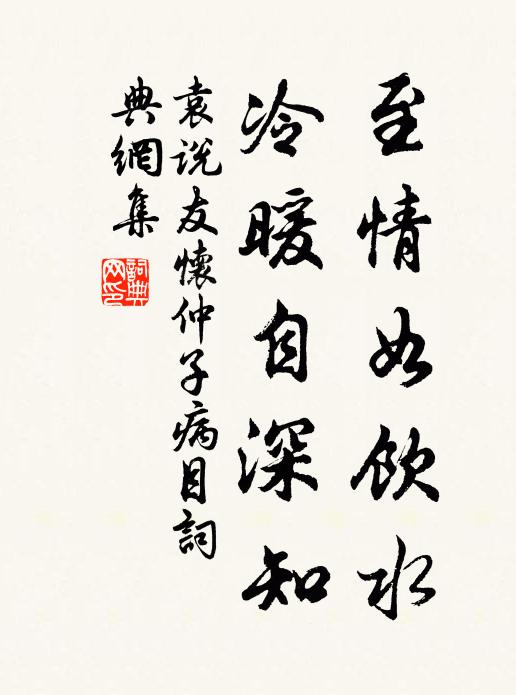 至情如飲水
冷暖自深知
袁說友懷仲子病目詞
典網集
詞典
网印